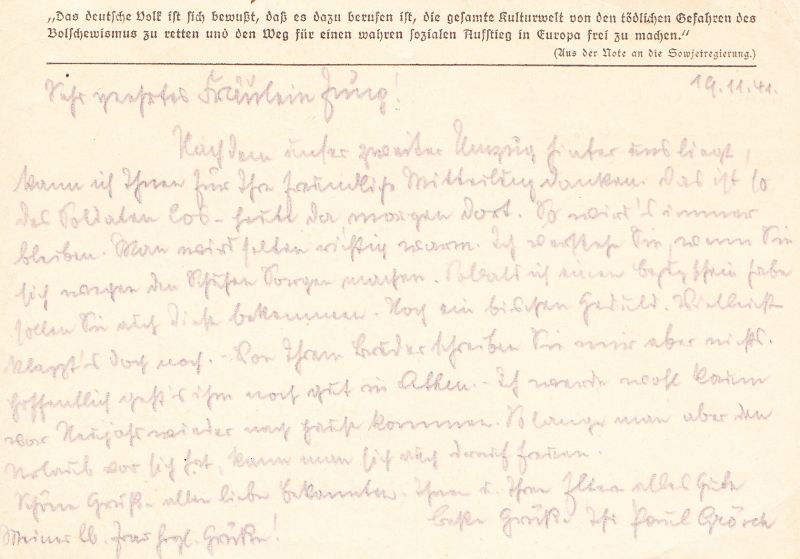 „Das deutsche Volk ist sich bewußt, daß es dazu berufen ist, die gesamte Kulturwelt von den tödlichen Gefahren des
Bolschewismus zu retten und den Weg für einen wahren sozialen Aufstieg in Europa frei zu machen.“
(Aus der Note an die Sowjetregierung.)
19.11.41.
Sehr geehrtes Fräulein Jung!
Nachdem unser zweiter Umzug hinter uns liegt,
kann ich Ihnen für Ihre freundliche Mitteilung danken. Das ist so
des Soldaten Los – heute da morgen dort. So wird's immer
bleiben. Man wird selten richtig warm. Ich verstehe Sie, wenn Sie
sich wegen den Schuhen Sorgen machen. Sobald ich einen Bezugschein habe
sollen Sie auch diese bekommen. Noch ein bischen Geduld. Vielleicht
klappt's doch noch. – Von Ihrem Bruder schreiben Sie mir aber nichts.
Hoffentlich geht's ihm noch gut in Athen. – Ich werde wohl kaum
vor Neujahr wieder nach Hause kommen. So lange man aber den
Urlaub vor sich hat, kann man sich auch darauf freuen.
Schöne Grüße allen lieben Bekannten. Ihnen u. Ihren Eltern alles Gute
beste Grüße Ihr Paul
Meiner lb. Frau herzl. Grüße!